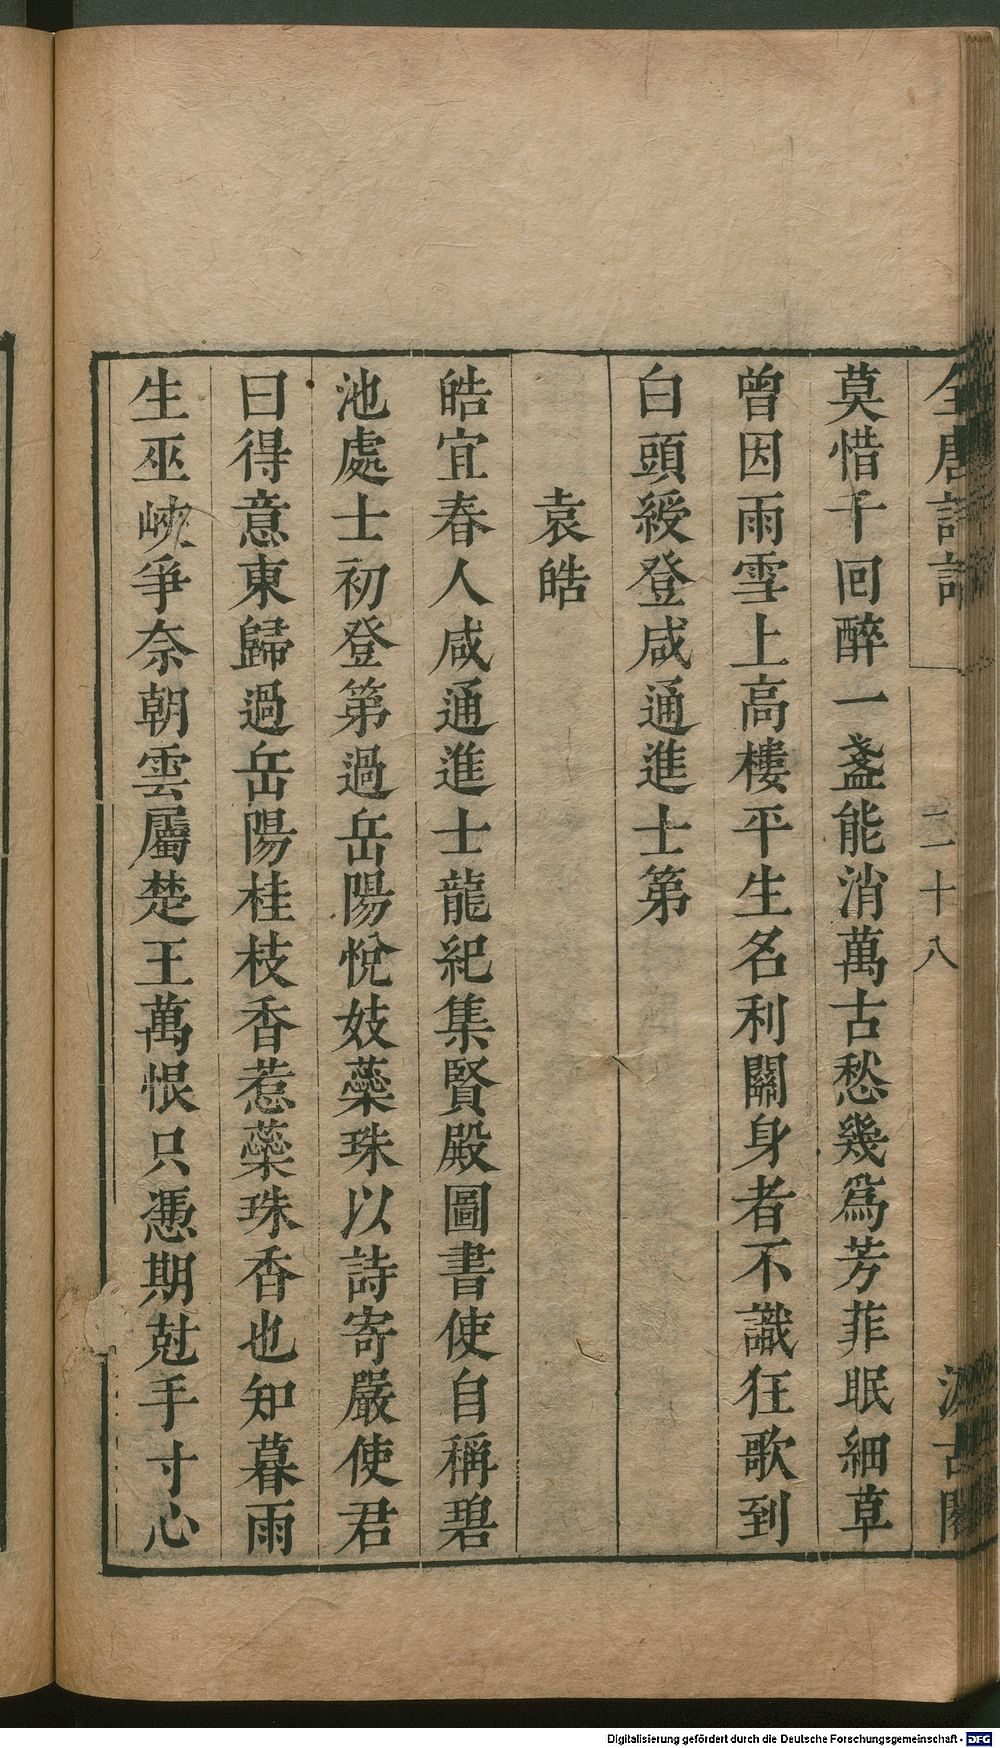 全唐詩話
二十八
汲古閣
莫惜千回醉一盞能消萬古愁幾爲芳菲眠細草
曾因雨雪上高樓平生名利關身者不識狂歌到
白頭綬登咸通進士第
袁皓
皓宜春人咸通進士龍紀集賢殿圖書使自稱碧
池處士初登第過岳陽悅妓蘂珠以詩寄嚴使君
曰得意東歸過岳陽桂枝香惹蘂珠香也知暮雨
生巫峽爭奈朝雲屬楚王萬恨只憑期尅手寸心
Digitalisierung gefördert durch die Deutsche Forschungsgemeinschaft - DFG